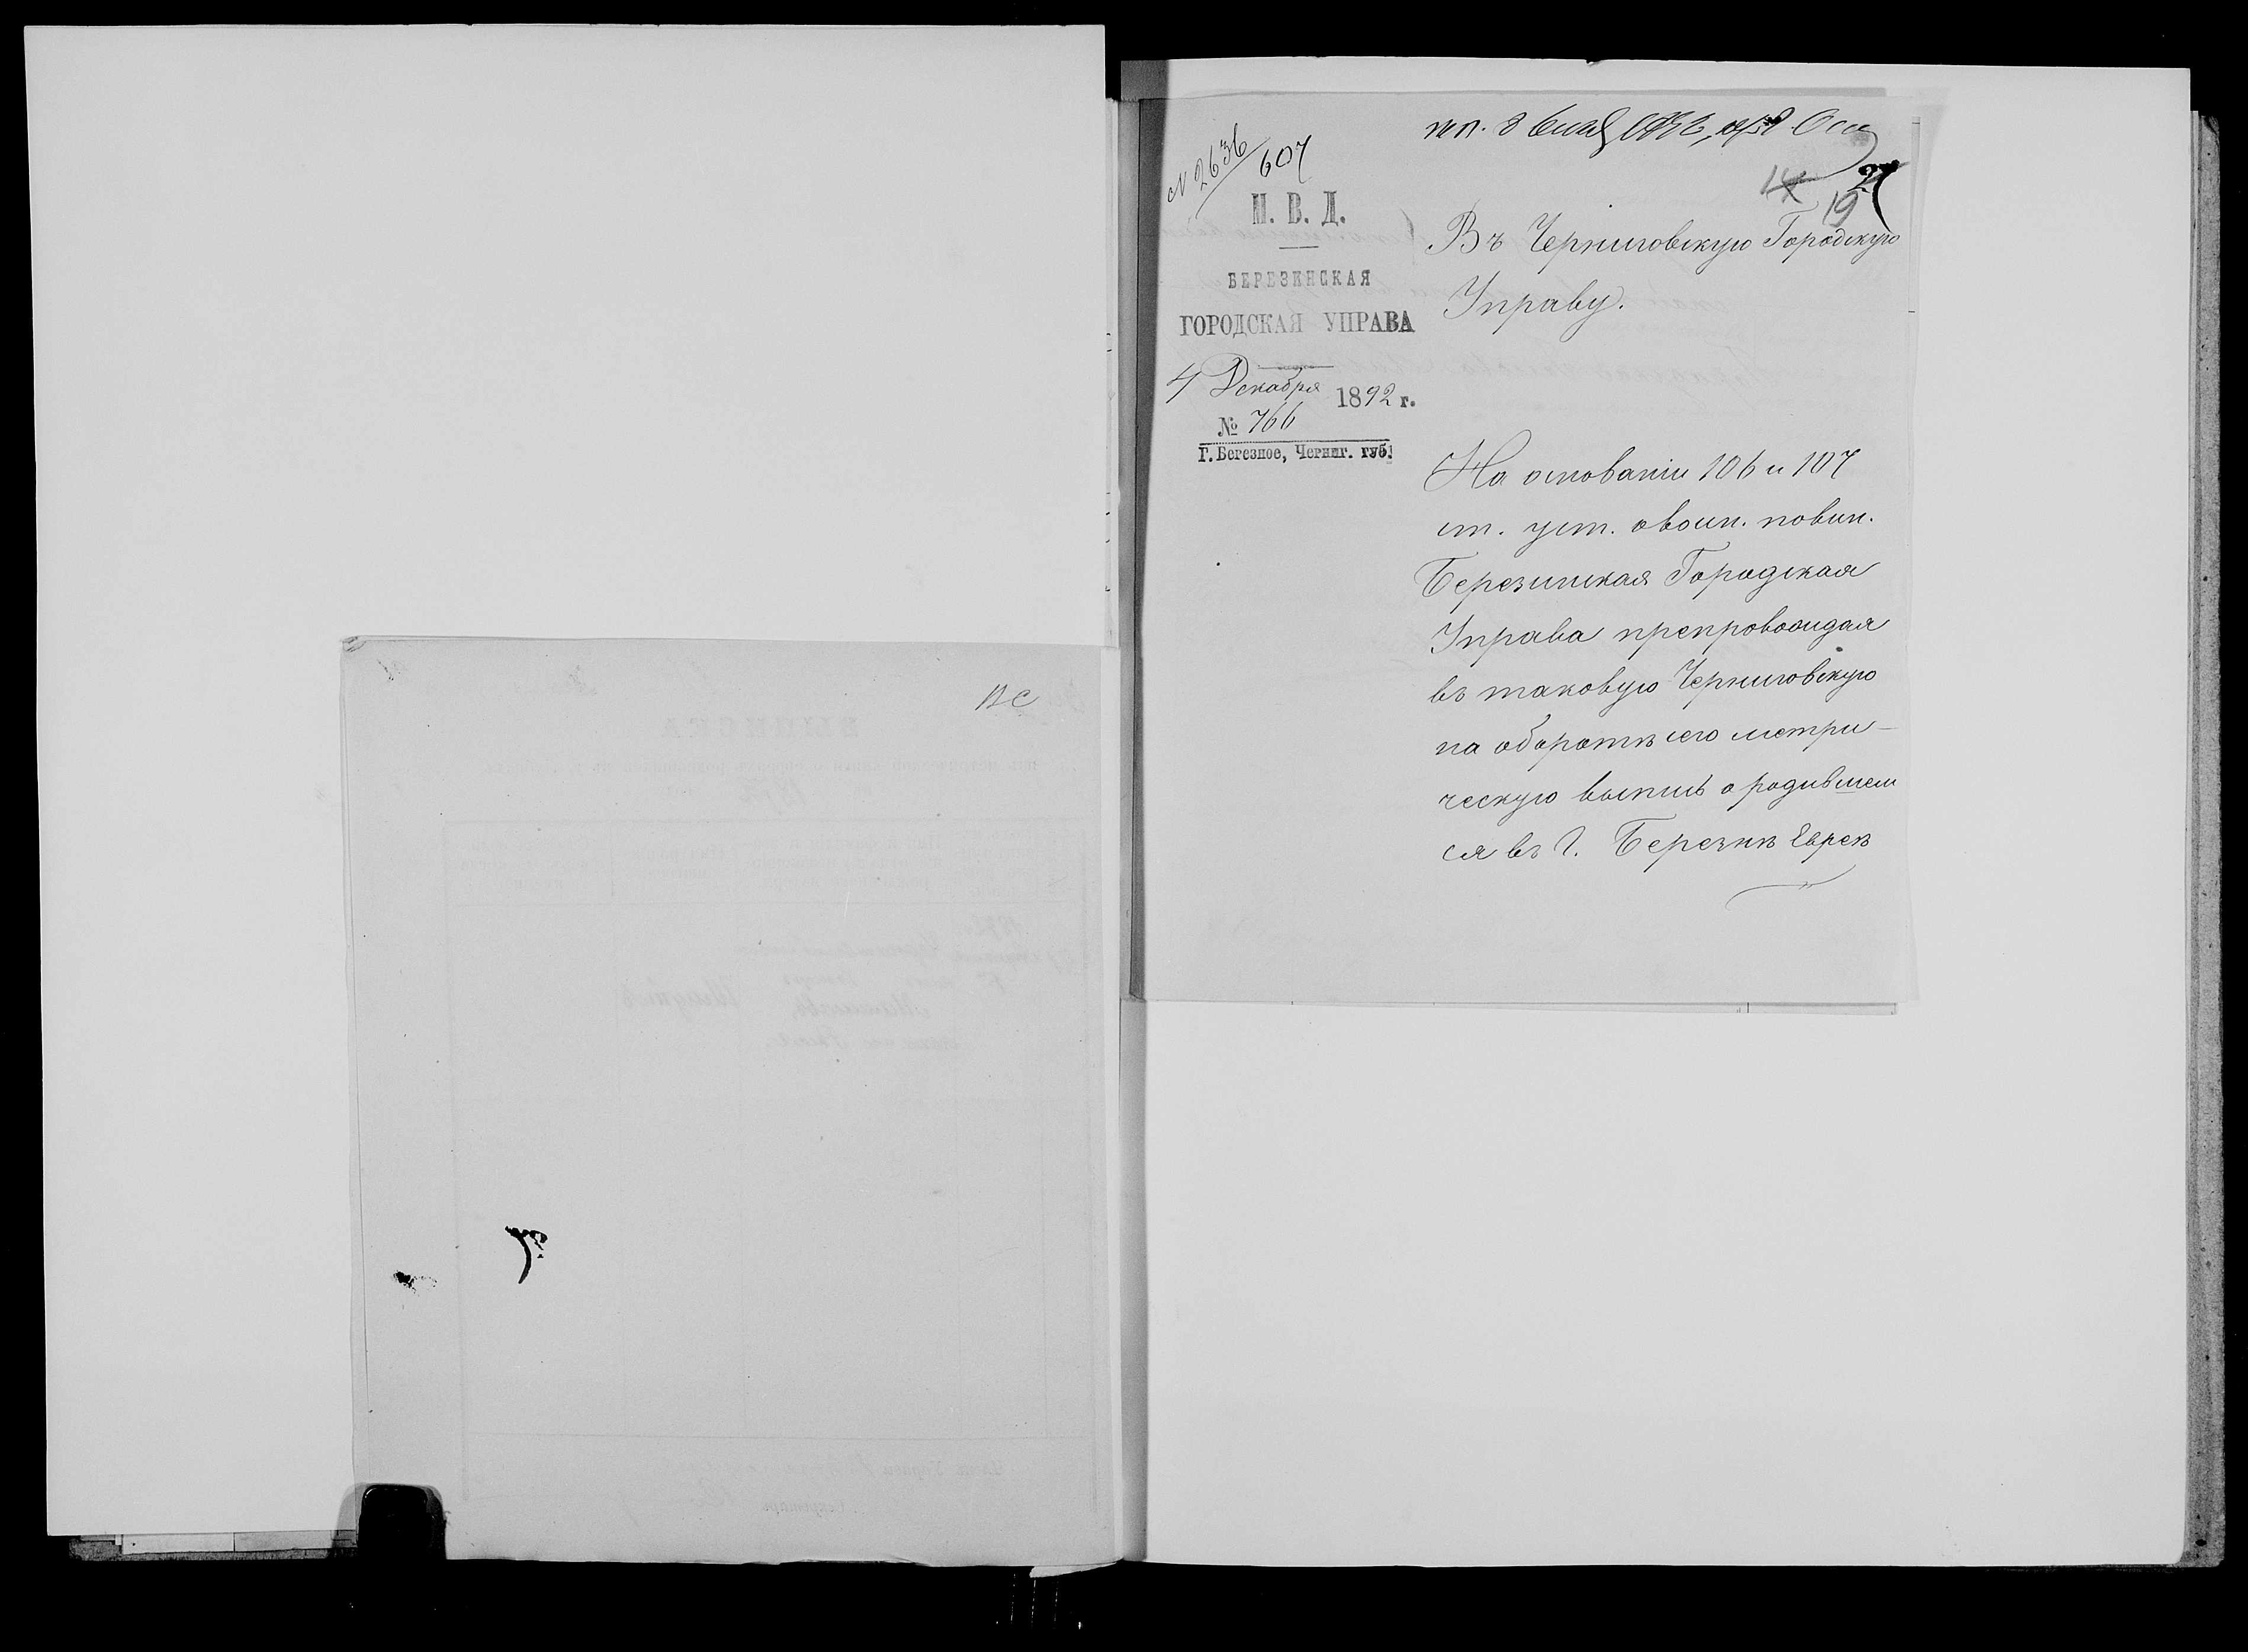 ВС
№ 2636/607
М. В. Д.
БЕРЕЗИНСКАЯ
ГОРОДСКАЯ УПРАВА
4 Декабря 1892 г.
№ 766
Г. Березное, Черниг. губ.
14 27
19
Въ Черниговскую Городскую
Управу.
На основаніи 106 и 107
ст. уст. о воин. повин.
Березинская Городская
Управа препровождая
въ таковую Черниговскую
на оборотѣ сего метри-
ческую выпись о родившем
ся въ г. Березнѣ Евреѣ